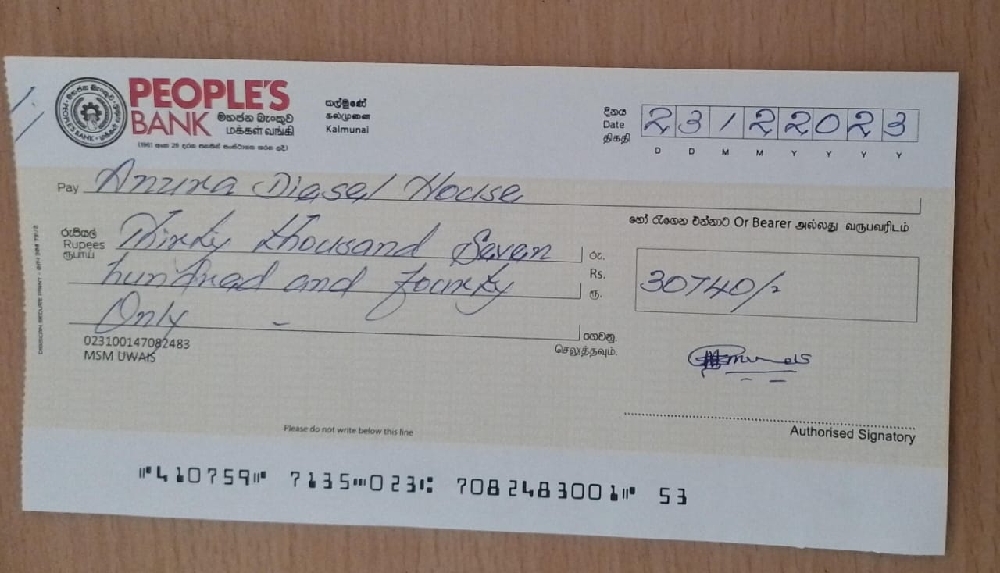 PEOPLE'S
BANK මහජන බැංකුව
மக்கள் வங்கி
කල්මුණේ
கல்முனை
Kalmunai
දිනය
Date
திகதி
2 3 1 2 2 0 2 3
D D M M Y Y Y Y
Pay Anura Diesel House
හෝ රැගෙන එන්නාට Or Bearer அல்லது வருபவரிடம்
රුපියල්
Rupees
ரூபாய்
Thirdy thousand Seven
hundred and fourty
Only -
රු.
Rs.
ரூ.
30740/-
ගෙවනු
செலுத்தவும்
023100147082483
MSM UWAIS
Please do not write below this line
Authorised Signatory
⑈410759⑈ 7135⑉023⑆ 7082483001⑈ 53